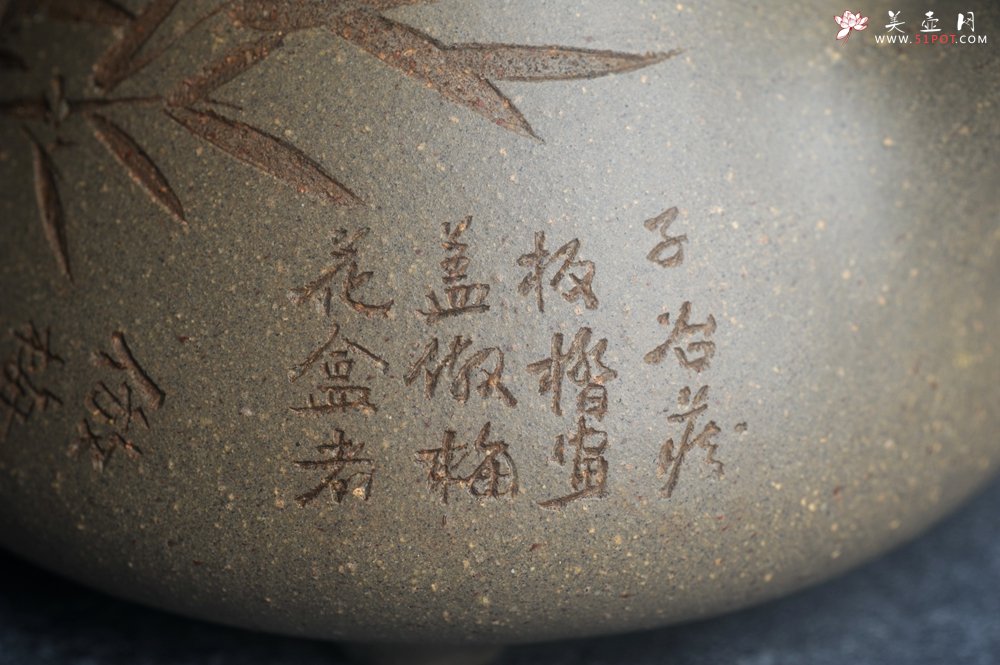 美壶网
WWW.51POT.COM
子冶藏
板橋画
盖倣梅
花盒者